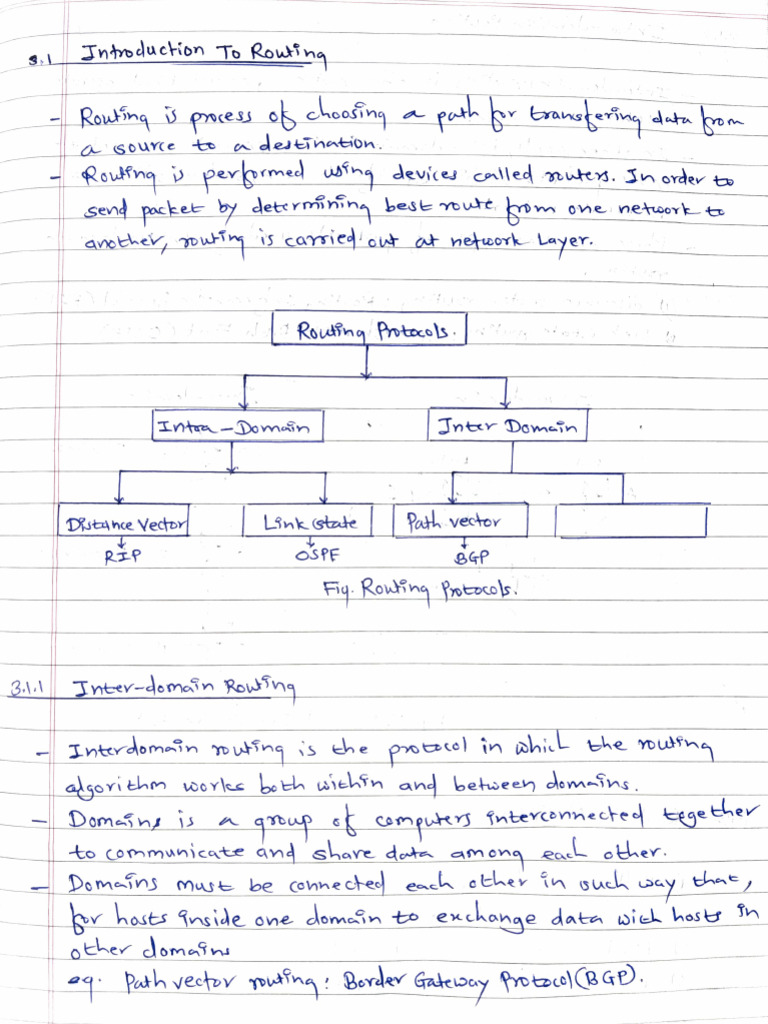 3.1 Introduction To Routing
- Routing is process of choosing a path for transfering data from
a source to a destination.
- Routing is performed using devices called routers. In order to
send packet by determining best route from one network to
another, routing is carried out at network Layer.
Routing Protocols.
Intra-Domain
Inter Domain
Distance Vector
Link state
Path vector
RIP
OSPF
BGP
Fig. Routing Protocols.
3.1.1 Inter-domain Routing
- Interdomain routing is the protocol in which the routing
algorithm works both within and between domains.
- Domains is a group of computers interconnected together
to communicate and share data among each other.
- Domains must be connected each other in such way that,
for hosts inside one domain to exchange data with hosts in
other domains
eg. Path vector routing: Border Gateway Protocol (BGP).